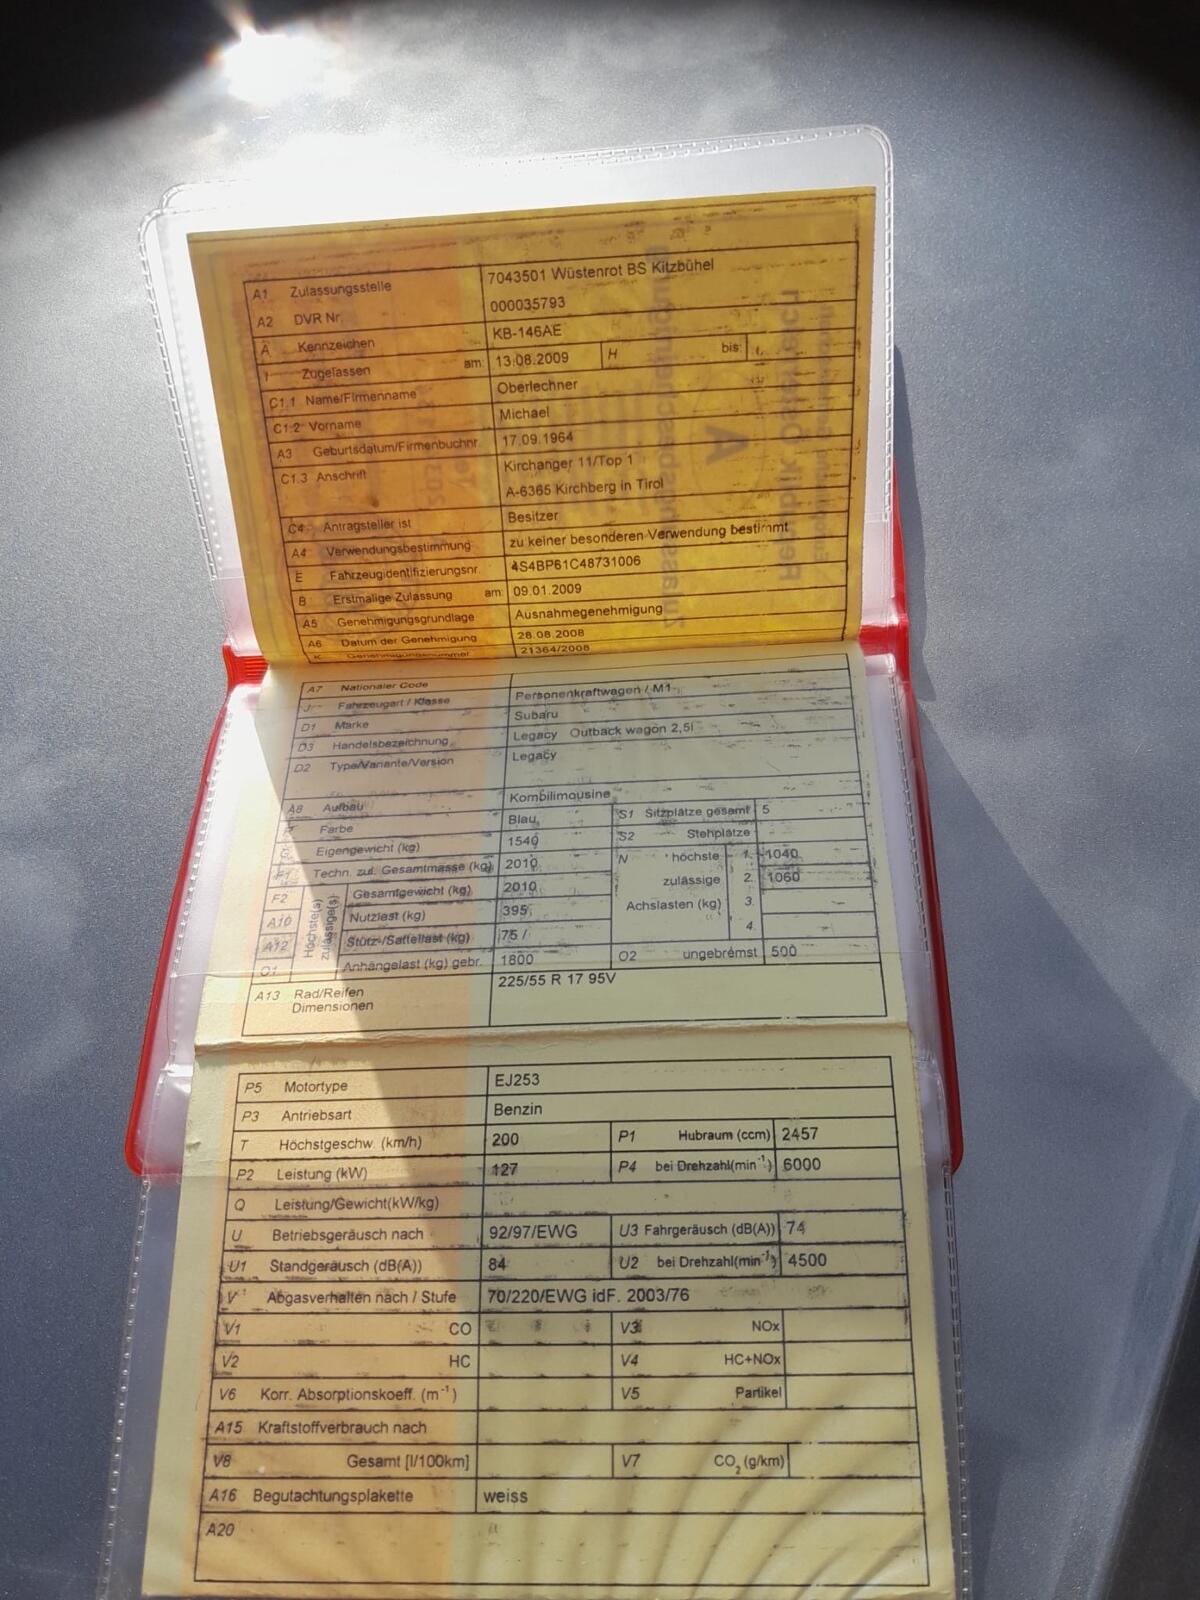 A1 Zulassungsstelle 7043501 Wüstenrot BS Kitzbühel
A2 DVR Nr. 000035793
A Kennzeichen KB-146AE
I Zugelassen am: 13.08.2009 H bis:
C1.1 Name/Firmenname Oberlechner
C1.2 Vorname Michael
A3 Geburtsdatum/Firmenbuchnr. 17.09.1964
C1.3 Anschrift Kirchanger 11/Top 1
A-6365 Kirchberg in Tirol
C4 Antragsteller ist Besitzer
A4 Verwendungsbestimmung zu keiner besonderen Verwendung bestimmt
E Fahrzeugidentifizierungsnr. 4S4BP61C48731006
B Erstmalige Zulassung am: 09.01.2009
A5 Genehmigungsgrundlage Ausnahmegenehmigung
A6 Datum der Genehmigung 28.08.2008
K Genehmigungsnummer 21364/2008
A7 Nationaler Code
J Fahrzeugart / Klasse Personenkraftwagen / M1
D1 Marke Subaru
D3 Handelsbezeichnung Legacy Outback wagon 2,5i
D2 Type/Variante/Version Legacy
A8 Aufbau Kombilimousine
Farbe Blau S1 Sitzplätze gesamt 5
G Eigengewicht (kg) 1540 S2 Stehplätze
F1 Techn. zul. Gesamtmasse (kg) 2010 N höchste 1. 1040
F2 Höchste(s) zulässige(s) Gesamtgewicht (kg) 2010 zulässige 2. 1060
A10 Nutzlast (kg) 395 Achslasten (kg) 3.
A12 Stütz-/Sattellast (kg) 75 / 4.
O1 Anhängelast (kg) gebr. 1800 O2 ungebremst 500
A13 Rad/Reifen 225/55 R 17 95V
Dimensionen
P5 Motortype EJ253
P3 Antriebsart Benzin
T Höchstgeschw. (km/h) 200 P1 Hubraum (ccm) 2457
P2 Leistung (kW) 127 P4 bei Drehzahl(min⁻¹) 6000
Q Leistung/Gewicht(kW/kg)
U Betriebsgeräusch nach 92/97/EWG U3 Fahrgeräusch (dB(A)) 74
U1 Standgeräusch (dB(A)) 84 U2 bei Drehzahl(min⁻¹) 4500
V Abgasverhalten nach / Stufe 70/220/EWG idF. 2003/76
V1 CO V3 NOx
V2 HC V4 HC+NOx
V6 Korr. Absorptionskoeff. (m⁻¹) V5 Partikel
A15 Kraftstoffverbrauch nach
V8 Gesamt [l/100km] V7 CO₂ (g/km)
A16 Begutachtungsplakette weiss
A20